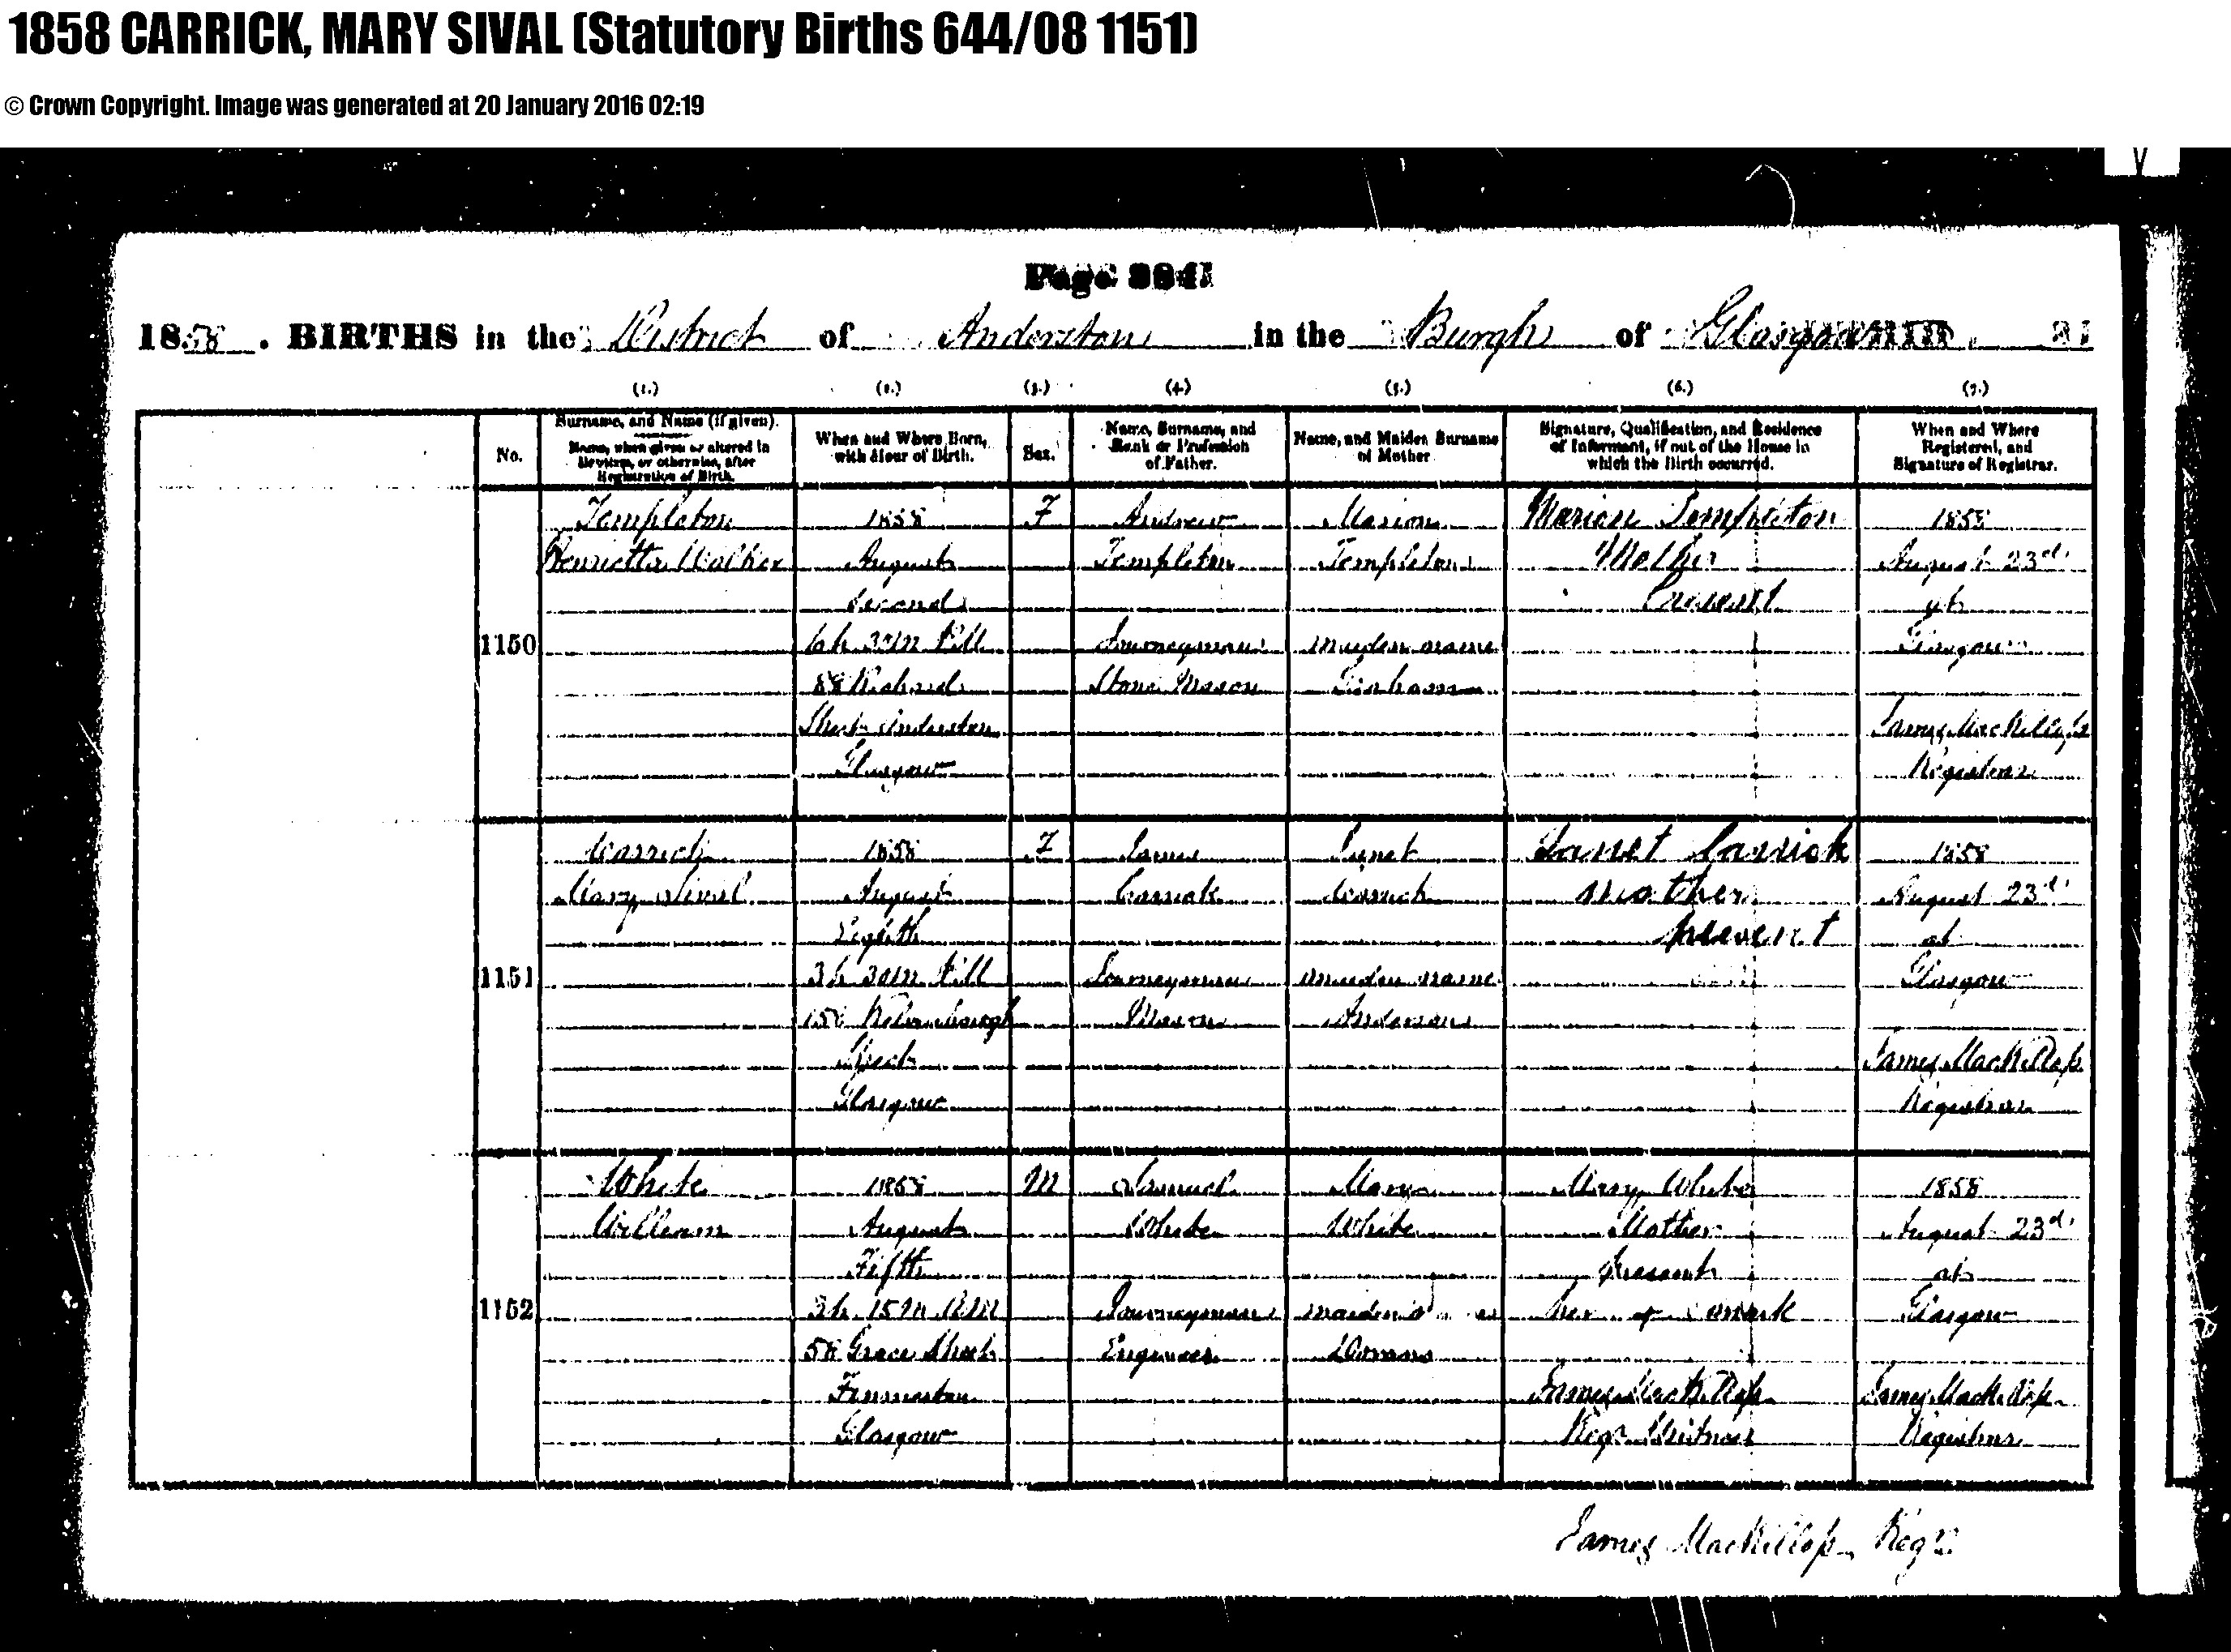 1858 CARRICK, MARY SIVAL (Statutory Births 644/08 1151)
© Crown Copyright. Image was generated at 20 January 2016 02:19
Page 384
1858. BIRTHS in the District of Anderston in the Burgh of Glasgow
(1.) (2.) (3.) (4.) (5.) (6.) (7.)
No.
Surname, and Name (if given).
Name, when given or altered in
Baptism, or otherwise, after
Registration of Birth.
When and Where Born,
with Hour of Birth.
Sex.
Name, Surname, and
Rank or Profession
of Father.
Name, and Maiden Surname
of Mother.
Signature, Qualification, and Residence
of Informant, if out of the House in
which the Birth occurred.
When and Where
Registered, and
Signature of Registrar.
1150
Templeton
Henrietta Walker
1858
August
Second
6 h. 30 m. P.M.
88 Richard
Street Anderston
Glasgow
F
Andrew
Templeton
Journeyman
Stone Mason
Marion
Templeton
maiden name
Marion Templeton
Mother
Present
1858
August 23d
at
Glasgow
James MacKillop
Registrar
1151
Carrick
Mary Sival
1858
August
Eighth
3 h. 30 m. P.M.
Street
Glasgow
F
James
Carrick
Journeyman
Mason
Janet
Carrick
maiden name
Anderson
Janet Carrick
mother
present
1858
August 23d
at
Glasgow
James MacKillop
Registrar
1152
White
William
1858
August
Fifth
3 h. 15 m. A.M.
58 Grace Street
Finnieston
Glasgow
M
Samuel
White
Journeyman
Engineer
Mary
White
maiden
Mary White
Mother
Present
her mark
James MacKillop
Regr. Witness
1858
August 23d
at
Glasgow
James MacKillop
Registrar
James MacKillop Regr.